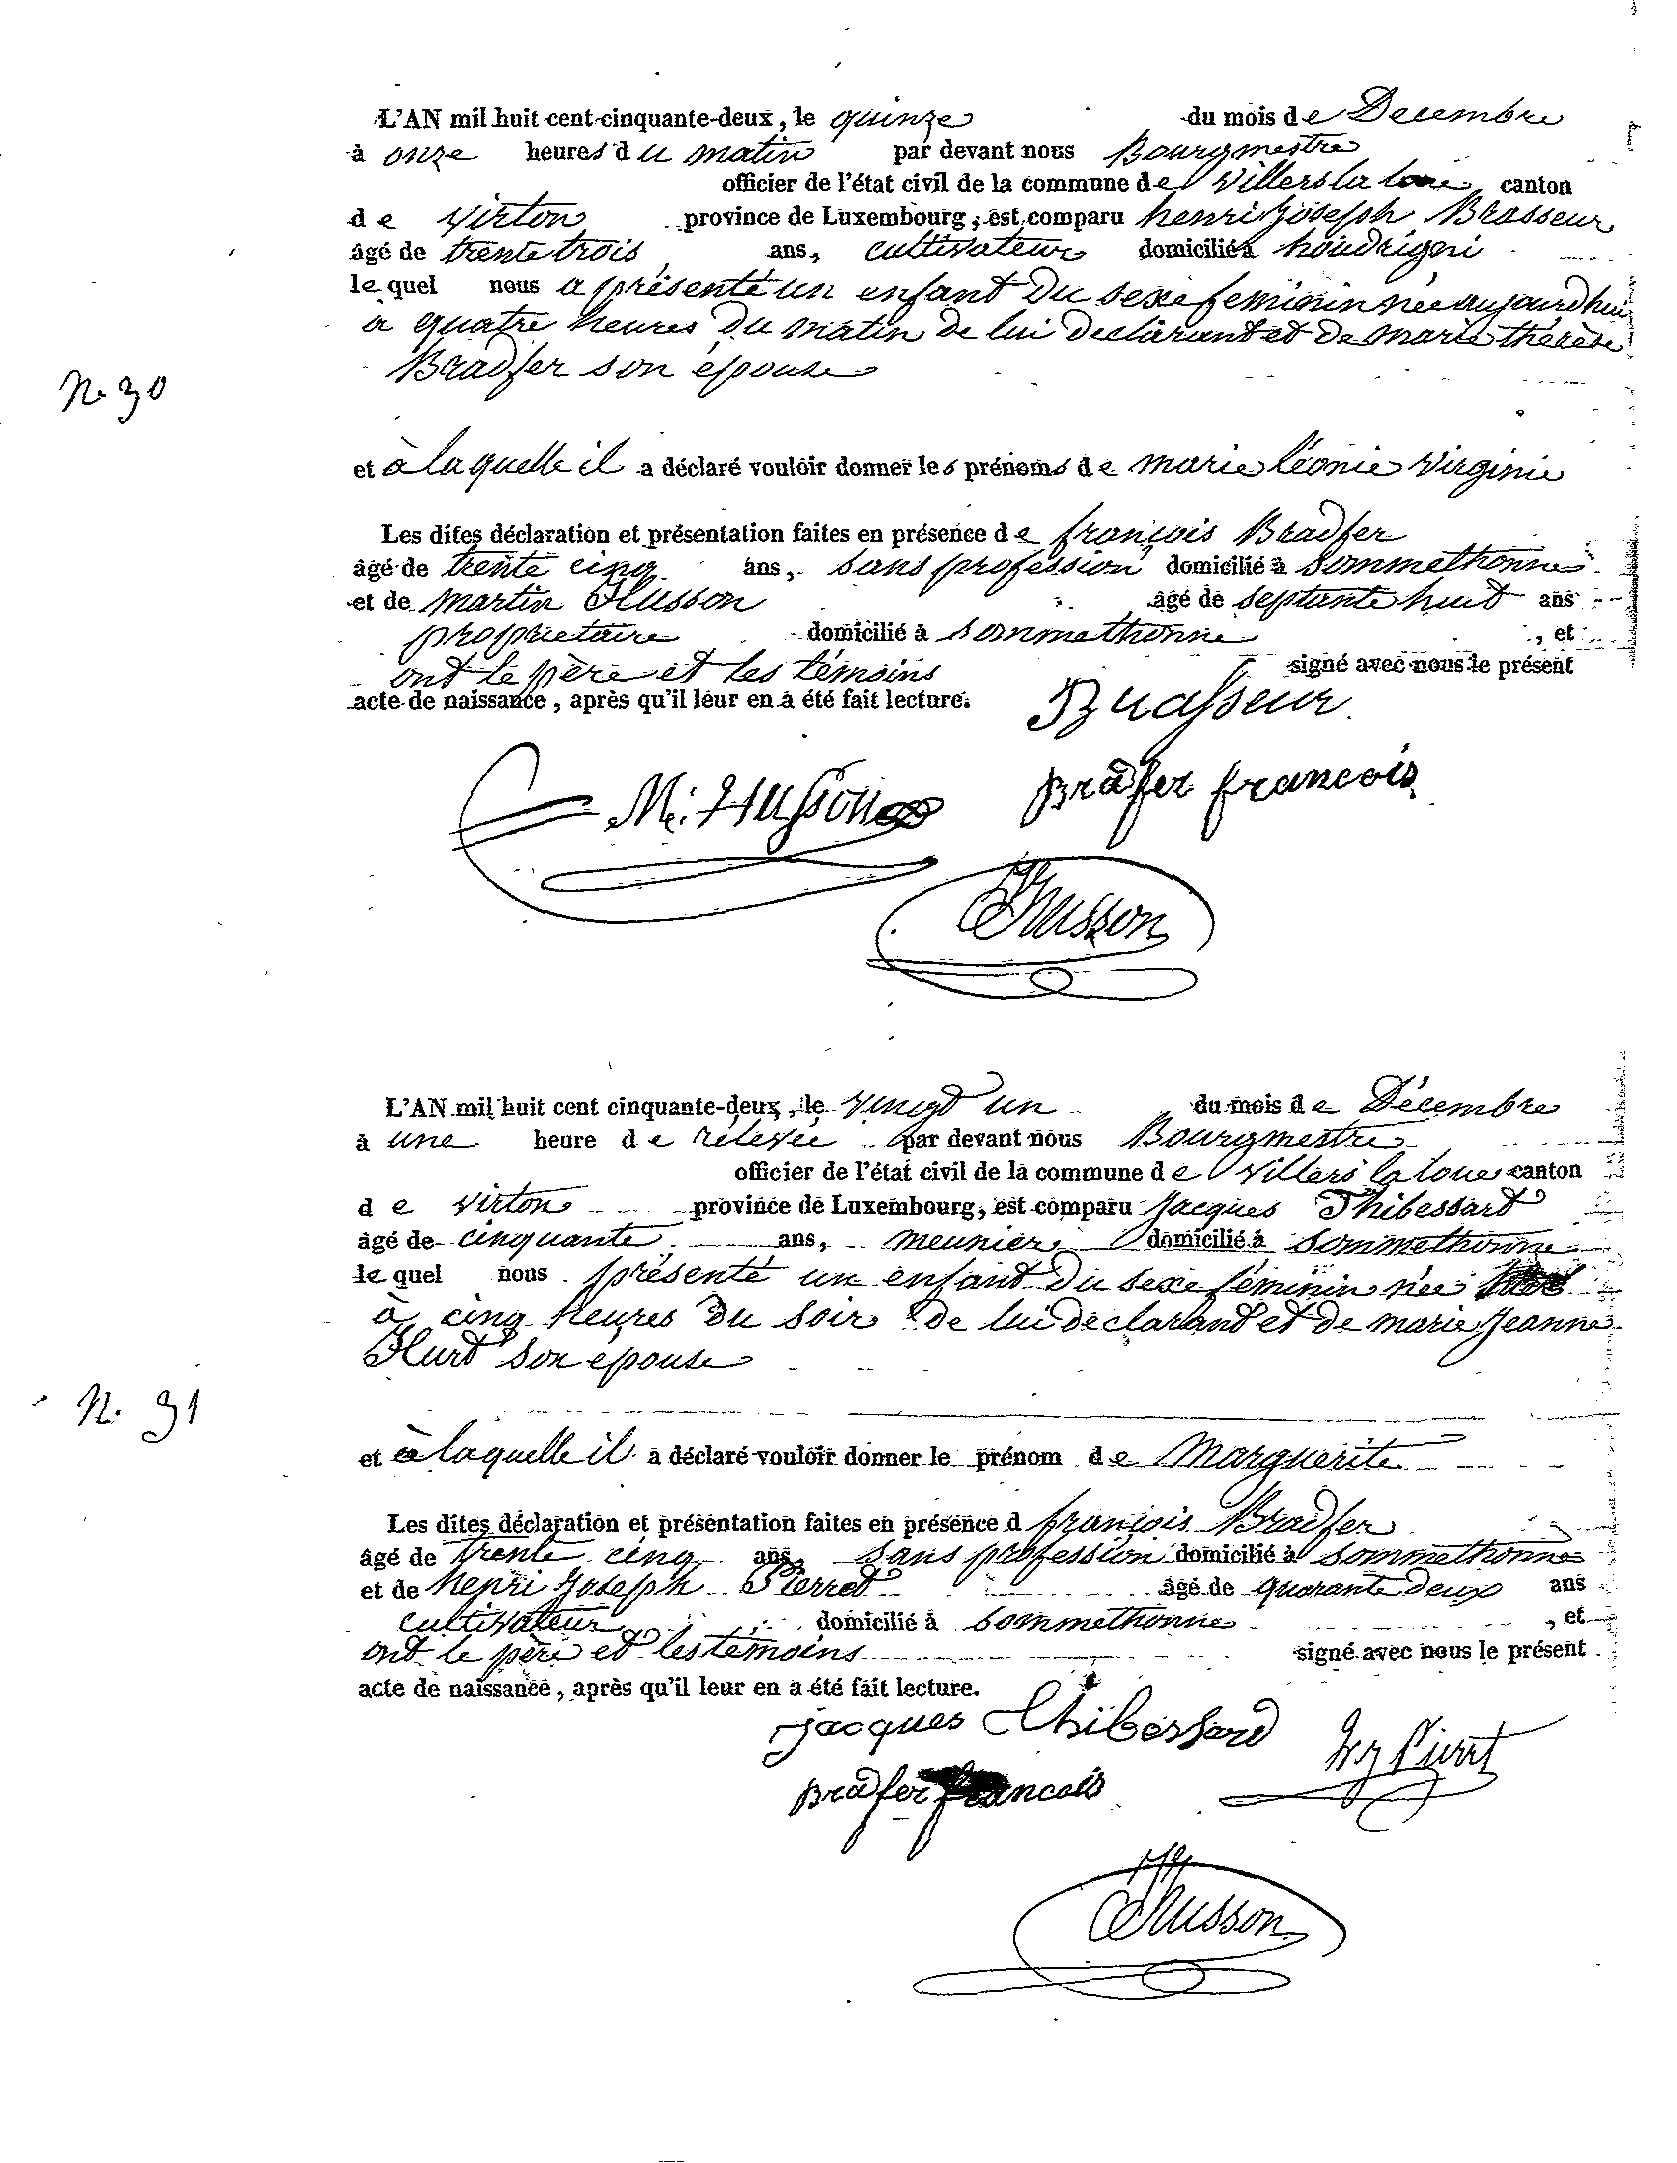 L'AN mil huit cent cinquante-deux, le quinze du mois de Decembre
à onze heures du matin par devant nous Bourgmestre
officier de l'état civil de la commune de Villers la loue canton
de Virton province de Luxembourg, est comparu henri Joseph Brasseur
âgé de trente trois ans, cultivateur domicilié à houdrigni
le quel nous a présenté un enfant du sexe feminin née aujourdhui
à quatre heures du matin de lui declarant et de marie thérèse
Bradfer son épouse
N. 30
et à laquelle il a déclaré vouloir donner les prénoms de marie léonie Virginie
Les dites déclaration et présentation faites en présence de françois Bradfer
âgé de trente cinq ans, sans profession domicilié à Sommethonne
et de Martin Husson âgé de septante huit ans
proprietaire domicilié à Sommethonne, et
ont le père et les témoins signé avec nous le présent
acte de naissance, après qu'il leur en a été fait lecture.
Brasseur
M: Husson
Bradfer francois
Husson
L'AN mil huit cent cinquante-deux, le vingt un du mois de Décembre
à une heure de relevée par devant nous Bourgmestre
officier de l'état civil de la commune de Villers la loue canton
de Virton province de Luxembourg, est comparu Jacques Thibessart
âgé de cinquante ans, meunier domicilié à Sommethonne
le quel nous présenté un enfant du sexe féminin née
à cinq heures du soir de lui déclarant et de marie Jeanne
Hurt son épouse
N. 31
et à laquelle il a déclaré vouloir donner le prénom de Marguerite
Les dites déclaration et présentation faites en présence d françois Bradfer
âgé de trente cinq ans, sans profession domicilié à Sommethonne
et de henri Joseph Pierret âgé de quarante deux ans
cultivateur domicilié à Sommethonne, et
ont le père et les témoins signé avec nous le présent
acte de naissance, après qu'il leur en a été fait lecture.
Jacques Thibessard
Pierret
Bradfer francois
Husson